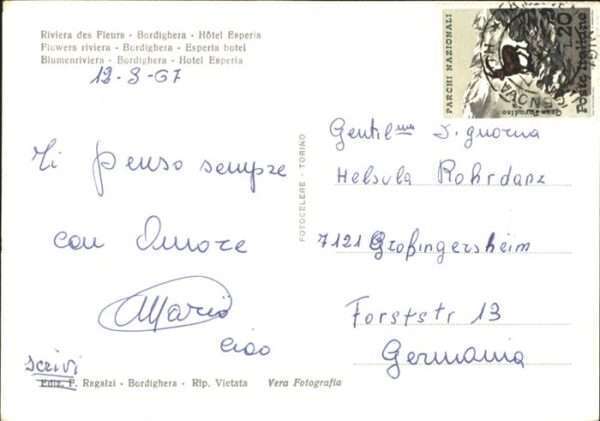 Riviera des Fleurs - Bordighera - Hôtel Esperia
Flowers riviera - Bordighera - Esperia hotel
Blumenriviera - Bordighera - Hotel Esperia
12-3-67
Ti penso sempre
con Amore
Mario
ciao
scrivi
Ediz. P. Regalzi - Bordighera - Rip. Vietata Vera Fotografia
FOTOCELERE - TORINO
PARCHI NAZIONALI
L.20
Gran Paradiso
Poste Italiane
Gentilma Signorina
Helsula Rohrdanz
7121 Großingersheim
Forststr 13
Germania